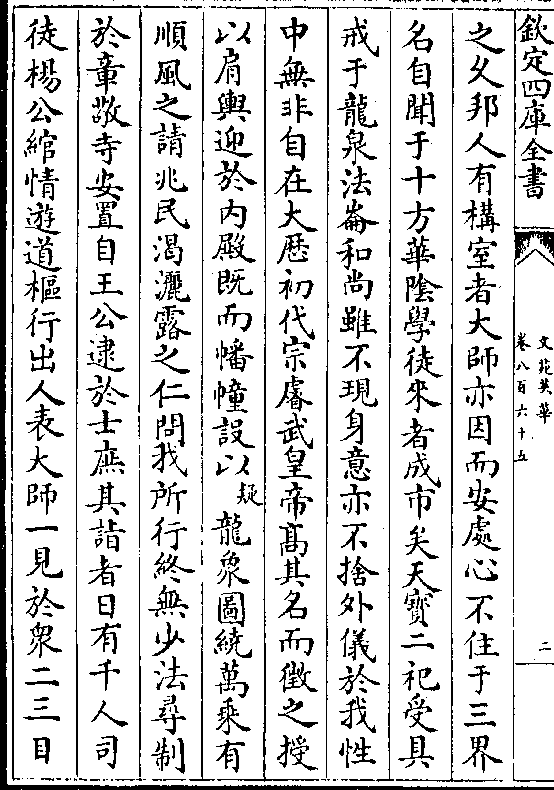 欽定四庫全書
文苑英華
卷八百六十五
二
之夂邦人有構室者大師亦因而安處心不住于三界
名自聞于十方華陰學徒來者成市矣天寳二祀受具
戒于龍泉法崙和尚雖不現身意亦不捨外儀於我性
中無非自在大厯初代宗睿武皇帝髙其名而徴之授
以肩輿迎於内殿既而幡幢設以疑龍衆圍繞萬乘有
順風之請兆民渴灑露之仁問我所行終無少法尋制
於章敬寺安置自王公逮於士庶其詣者日有千人司
徒楊公綰情遊道樞行出人表大師一見於衆二三目